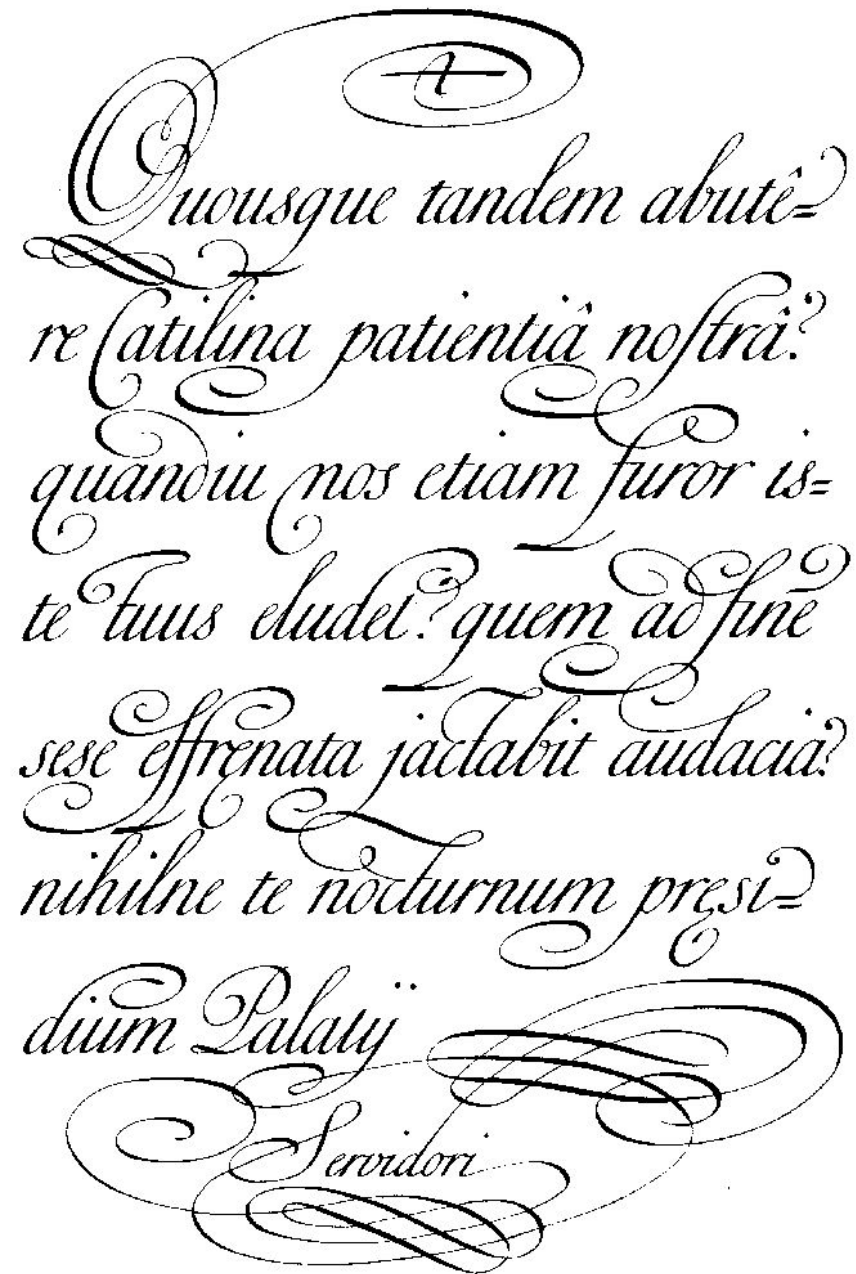 Quousque tandem abutê=
re Catilina patientiâ noſtrâ?
quandiu nos etiam furor is=
te tuus eludet? quem ad finē
sese effręnata jactabit audacia?
nihilne te nocturnum pręsi=
dium Palatij
Servidori